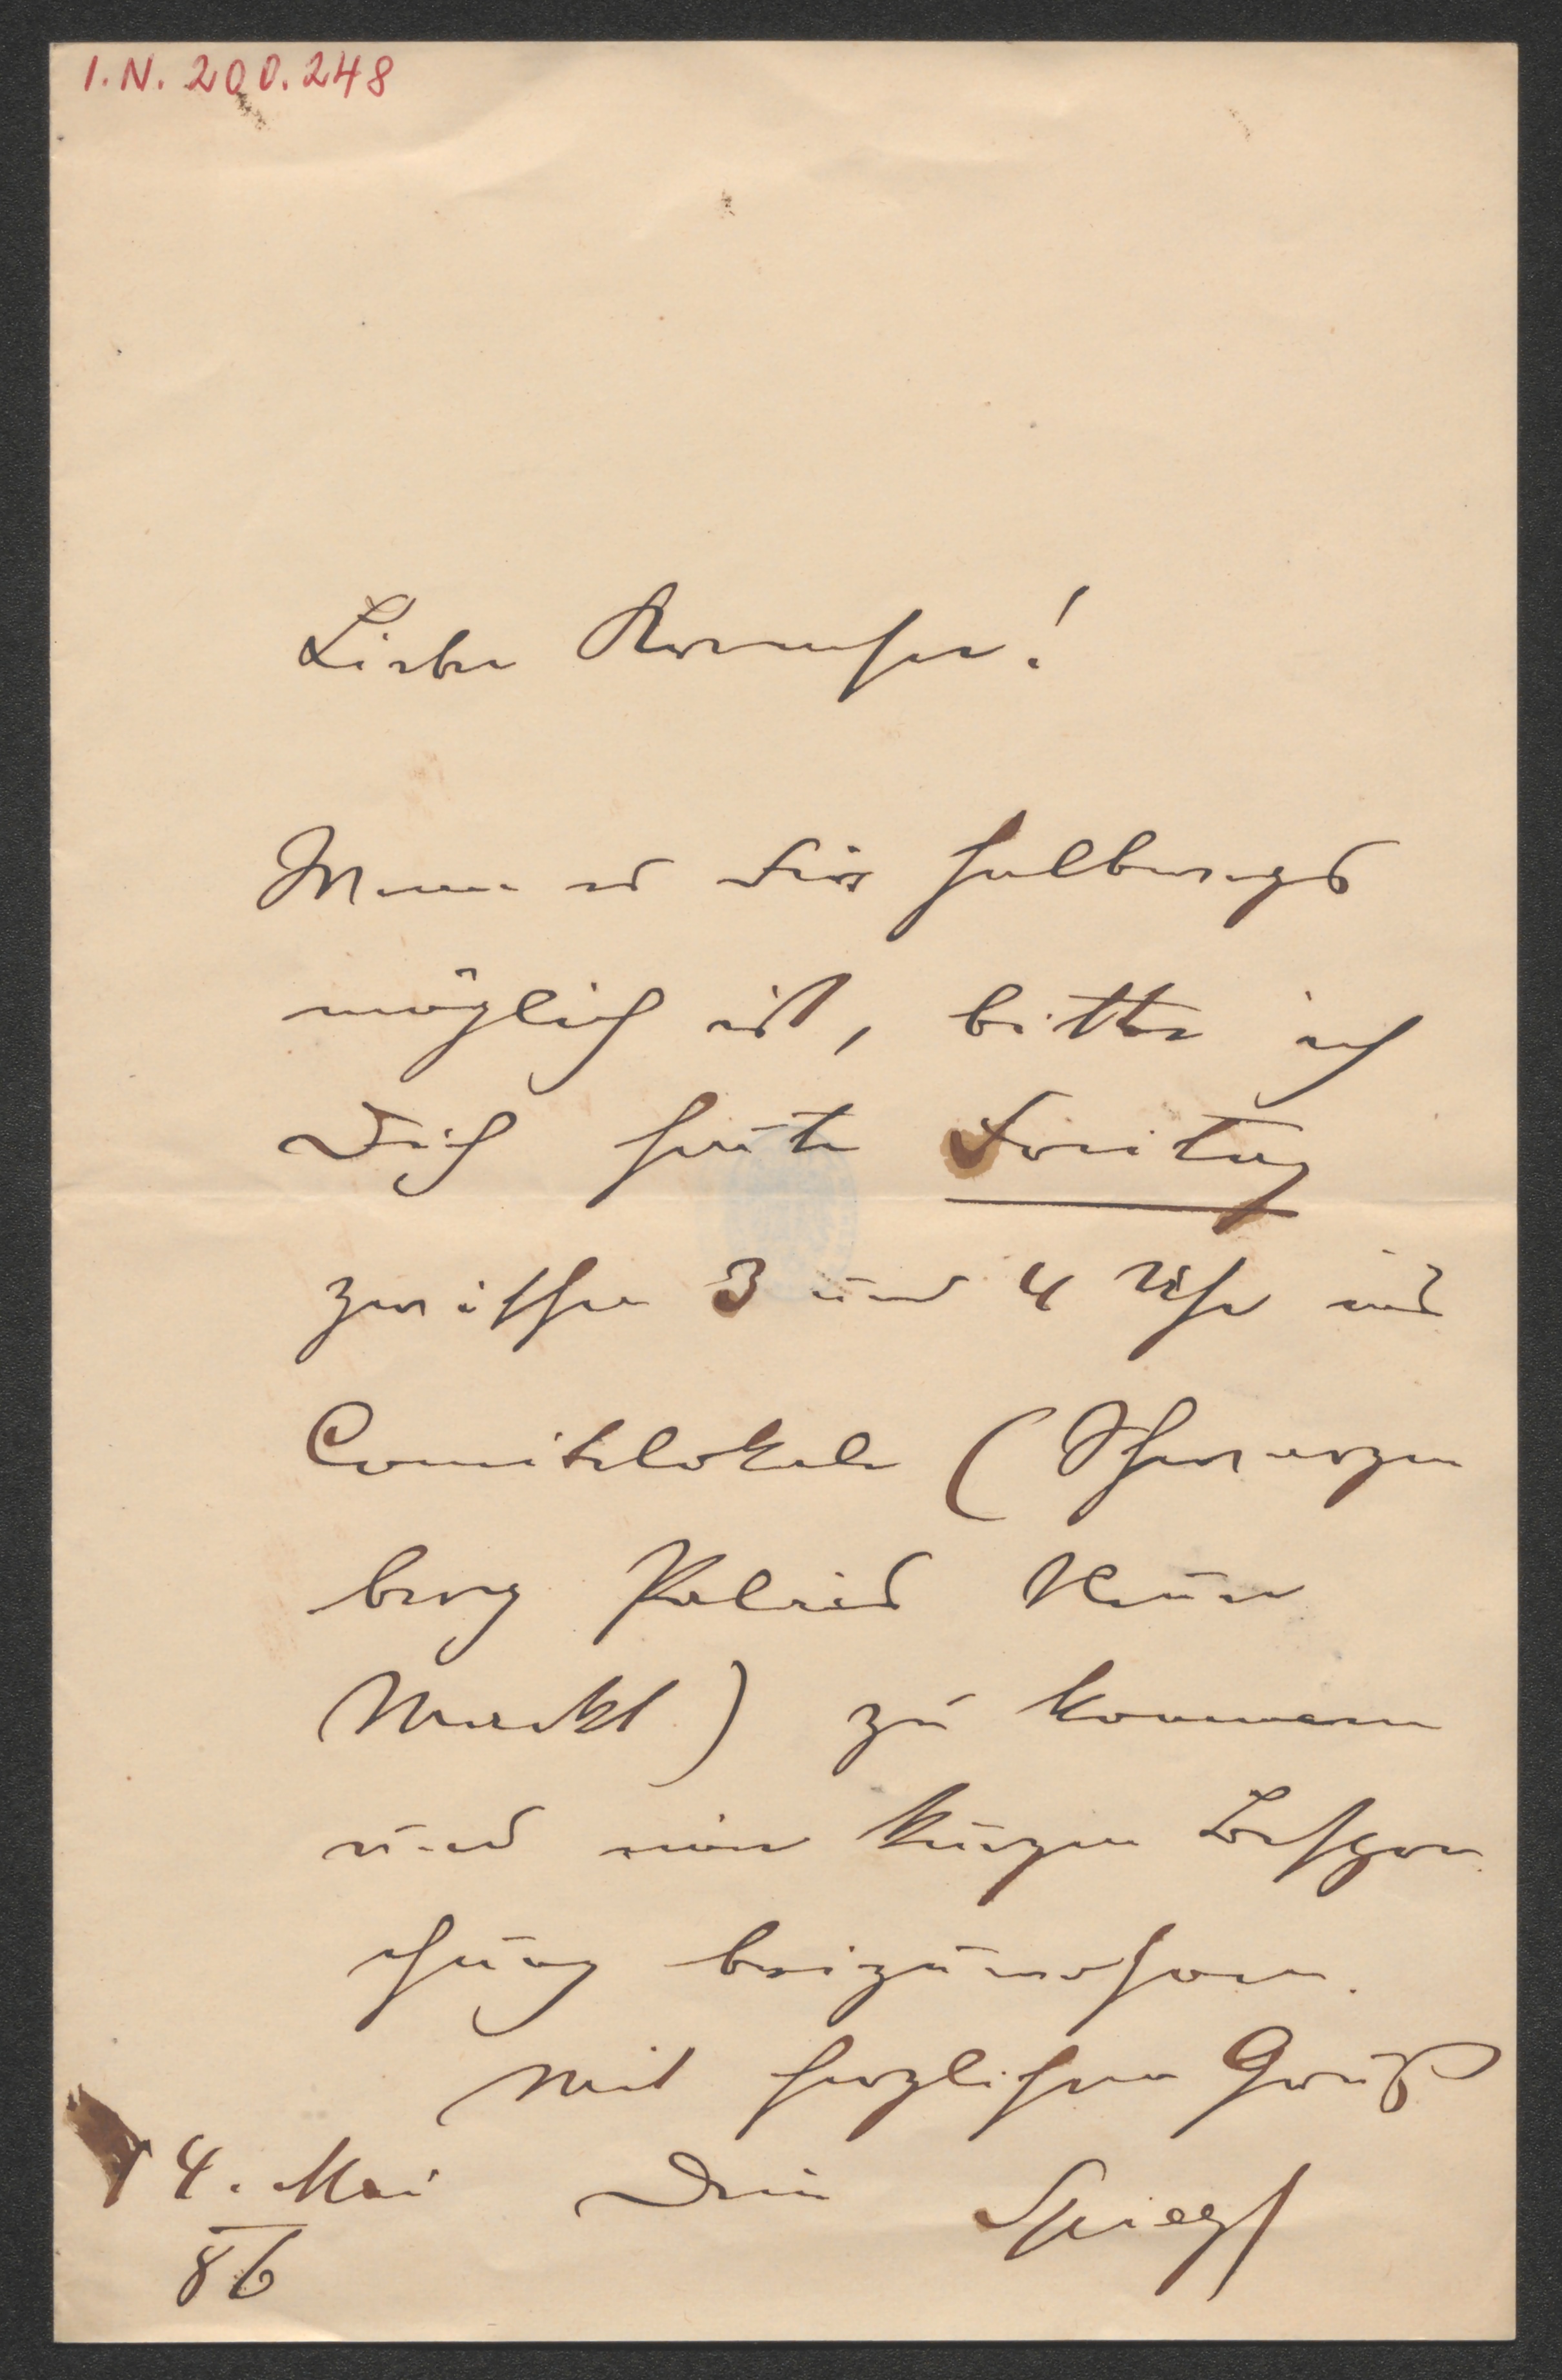 I.N. 200.248
Lieber Kremser!
Wenn es Dir halbwegs
möglich ist, bitte ich
Dich heute Freitag
zwischen 3 und 4 Uhr ins
Comitelokale (Schwarzen
berg Palais Neuer
Markt) zu kommen
und einer kurzen Bespre
chung beizuwohnen.
Mit herzlichem Gruß
14. Mai Dein Spiegl
86